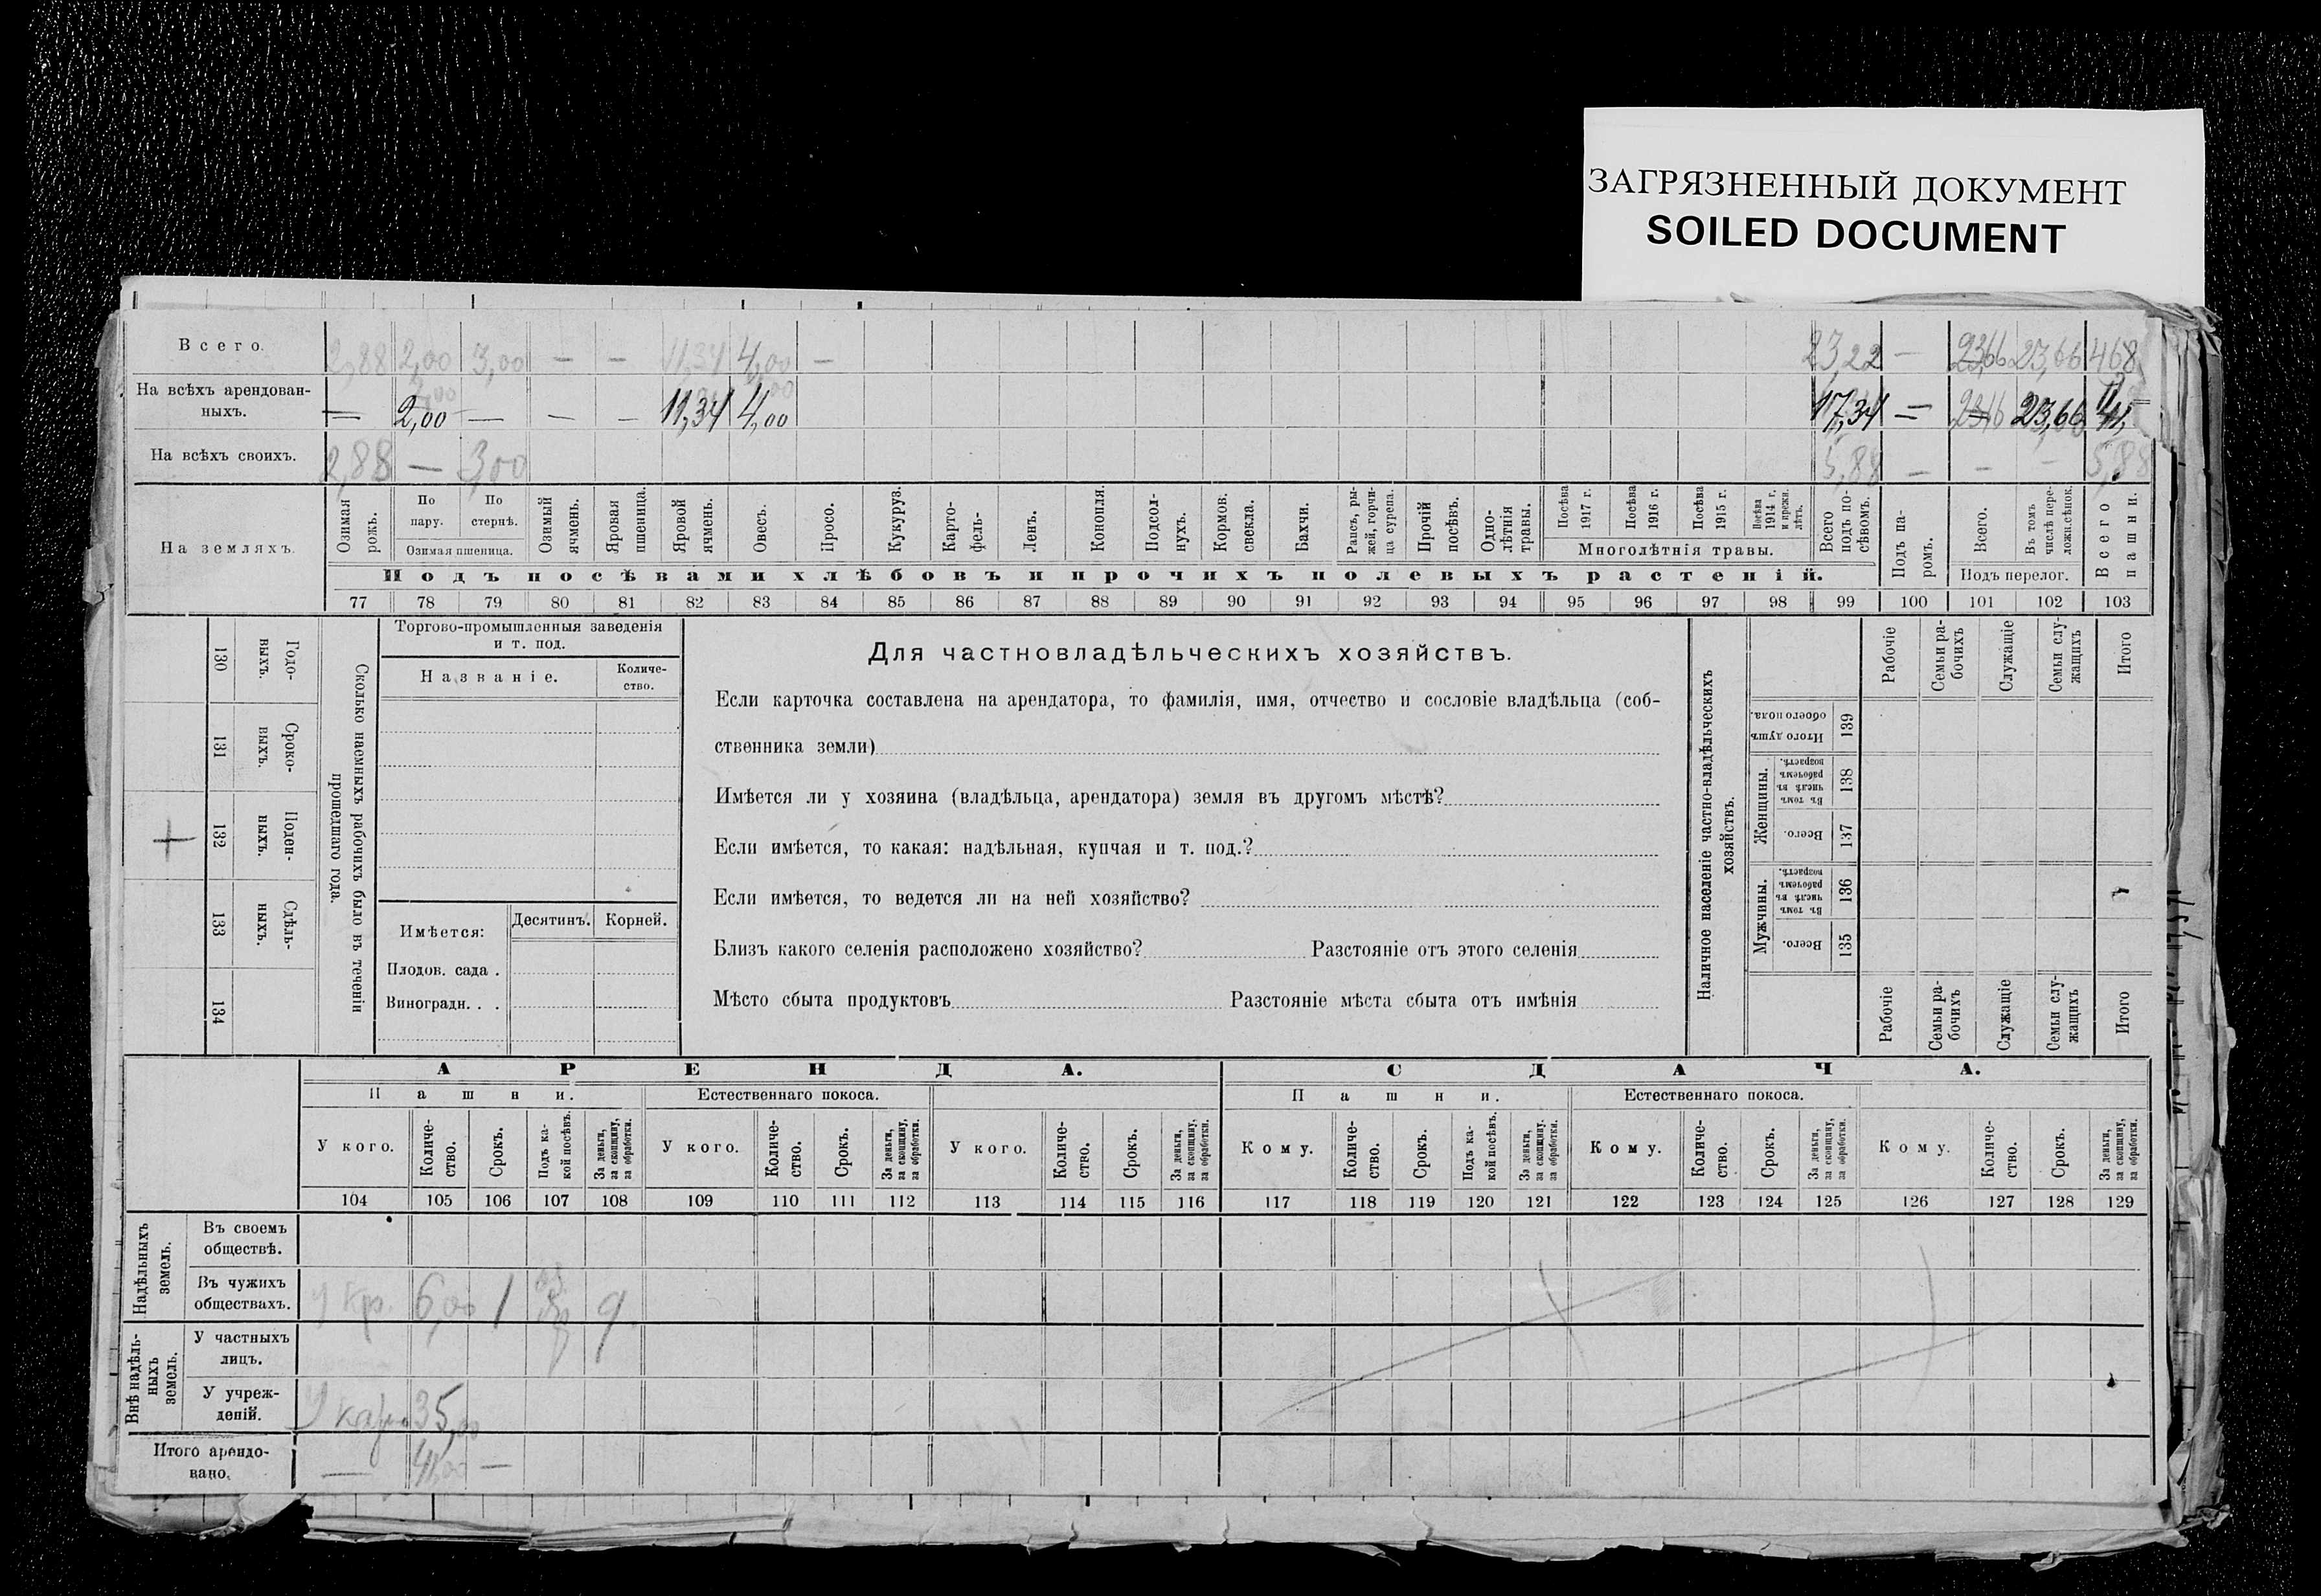 ЗАГРЯЗНЕННЫЙ ДОКУМЕНТ
SOILED DOCUMENT
Всего. 2,88 2,00 3,00 — — 11,34 4,00 — 23,22 — 23,66 23,66 468
На всѣхъ арендован-
ныхъ. — 2,00 — — — 11,34 4,00 17,34 — 23,66
На всѣхъ своихъ. 2,88 — 3,00 5,88 — — — 5,88
На земляхъ.
Озимая рожь.
По пару.
По стернѣ.
Озимая пшеница.
Озимый ячмень.
Яровая пшеница.
Яровой ячмень.
Овесъ.
Просо.
Кукуруз.
Карто-
фель-
Ленъ.
Конопля.
Подсол-
нухъ.
Кормов.
свекла.
Бахчи.
Рапсъ, ры-
жей, горчи-
ца сурепа.
Прочій
посѣвъ.
Одно-
лѣтнія
травы.
Посѣва
1917 г.
Посѣва
1916 г.
Посѣва
1915 г.
Посѣва
1914 г.
и прежн.
лѣтъ.
Многолѣтнія травы.
Всего
подъ по-
сѣвомъ.
Подъ па-
ромъ.
Всего.
Въ томъ
числѣ пере-
ложн.сѣнок.
Подъ перелог.
Всего
пашни.
Подъ посѣвами хлѣбовъ и прочихъ полевыхъ растеній.
77 78 79 80 81 82 83 84 85 86 87 88 89 90 91 92 93 94 95 96 97 98 99 100 101 102 103
130 Годо-
выхъ.
131 Сроко-
выхъ.
132 Поден-
ныхъ.
133 Сдѣль-
ныхъ.
134
Сколько наемныхъ рабочихъ было въ теченіи
прошедшаго года.
Торгово-промышленныя заведенія
и т. под.
Названіе.
Количе-
ство.
Имѣется:
Десятинъ.
Корней.
Плодов. сада .
Виноградн. . .
Для частновладѣльческихъ хозяйствъ.
Если карточка составлена на арендатора, то фамилія, имя, отчество и сословіе владѣльца (соб-
ственника земли)
Имѣется ли у хозяина (владѣльца, арендатора) земля въ другомъ мѣстѣ?
Если имѣется, то какая: надѣльная, купчая и т. под.?
Если имѣется, то ведется ли на ней хозяйство?
Близъ какого селенія расположено хозяйство? Разстояніе отъ этого селенія
Мѣсто сбыта продуктовъ Разстояніе мѣста сбыта отъ имѣнія
Наличное населеніе частно-владѣльческихъ
хозяйствъ.
Рабочіе
Семьи ра-
бочихъ
Служащіе
Семьи слу-
жащихъ
Итого
Итого душъ
обоего пола.
139
Женщины.
Въ томъ
числѣ въ
рабочемъ
возрастѣ.
138
Всего.
137
Мужчины.
Въ томъ
числѣ въ
рабочемъ
возрастѣ.
136
Всего.
135
Рабочіе
Семьи ра-
бочихъ
Служащіе
Семьи слу-
жащихъ
Итого
АРЕНДА. СДАЧА.
Пашни. Естественнаго покоса. Пашни. Естественнаго покоса.
У кого.
Количе-
ство.
Срокъ.
Подъ ка-
кой посѣвъ.
За деньги,
за скопщину,
за обработки.
У кого.
Количе-
ство.
Срокъ.
За деньги,
за скопщину,
за обработки.
У кого.
Количе-
ство.
Срокъ.
За деньги,
за скопщину,
за обработки.
Кому.
Количе-
ство.
Срокъ.
Подъ ка-
кой посѣвъ.
За деньги,
за скопщину,
за обработки.
Кому.
Количе-
ство.
Срокъ.
За деньги,
за скопщину,
за обработки.
Кому.
Количе-
ство.
Срокъ.
За деньги,
за скопщину,
за обработки.
104 105 106 107 108 109 110 111 112 113 114 115 116 117 118 119 120 121 122 123 124 125 126 127 128 129
Надѣльныхъ
земель.
Въ своемъ
обществѣ.
Въ чужихъ
обществахъ. У кр. 6,00 1
Внѣ надѣль-
ныхъ
земель.
У частныхъ
лицъ.
У учреж-
деній. 35,00
Итого арендо-
вано. — 41,00 —